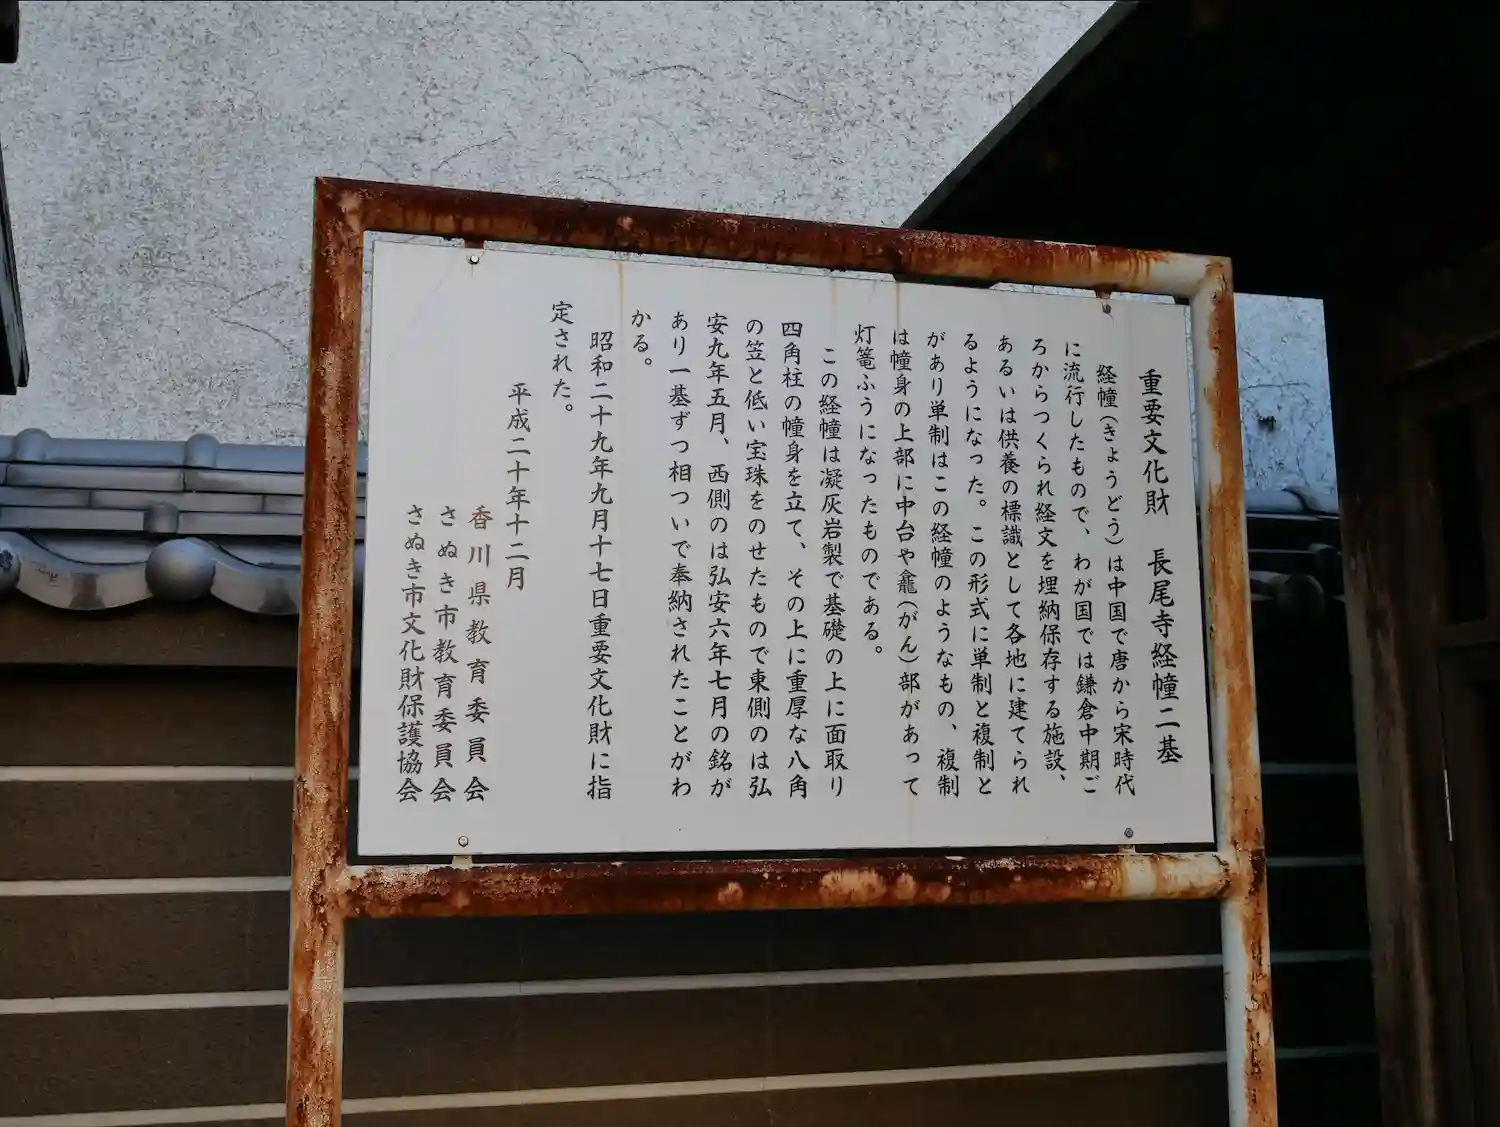 重要文化財　長尾寺経幢二基
経幢(きょうどう)は中国で唐から宋時代
に流行したもので、わが国では鎌倉中期ご
ろからつくられ経文を埋納保存する施設、
あるいは供養の標識として各地に建てられ
るようになった。この形式に単制と複制と
があり単制はこの経幢のようなもの、複制
は幢身の上部に中台や龕(がん)部があって
灯篭ふうになったものである。
この経幢は凝灰岩製で基礎の上に面取り
四角柱の幢身を立て、その上に重厚な八角
の笠と低い宝珠をのせたもので東側のは弘
安九年五月、西側のは弘安六年七月の銘が
あり一基ずつ相ついで奉納されたことがわ
かる。
昭和二十九年九月十七日重要文化財に指
定された。
平成二十年十二月
香川県教育委員会
さぬき市教育委員会
さぬき市文化財保護協会